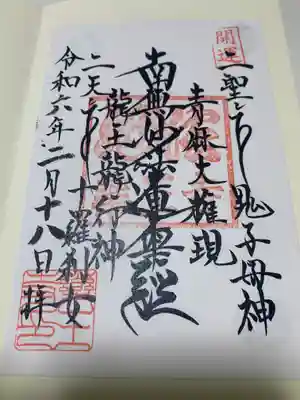 開運
二聖 鬼子母神
青麻大権現
南無妙法蓮華経
龍王龍行神
二天 十羅刹女
令和六年二月十八日拝